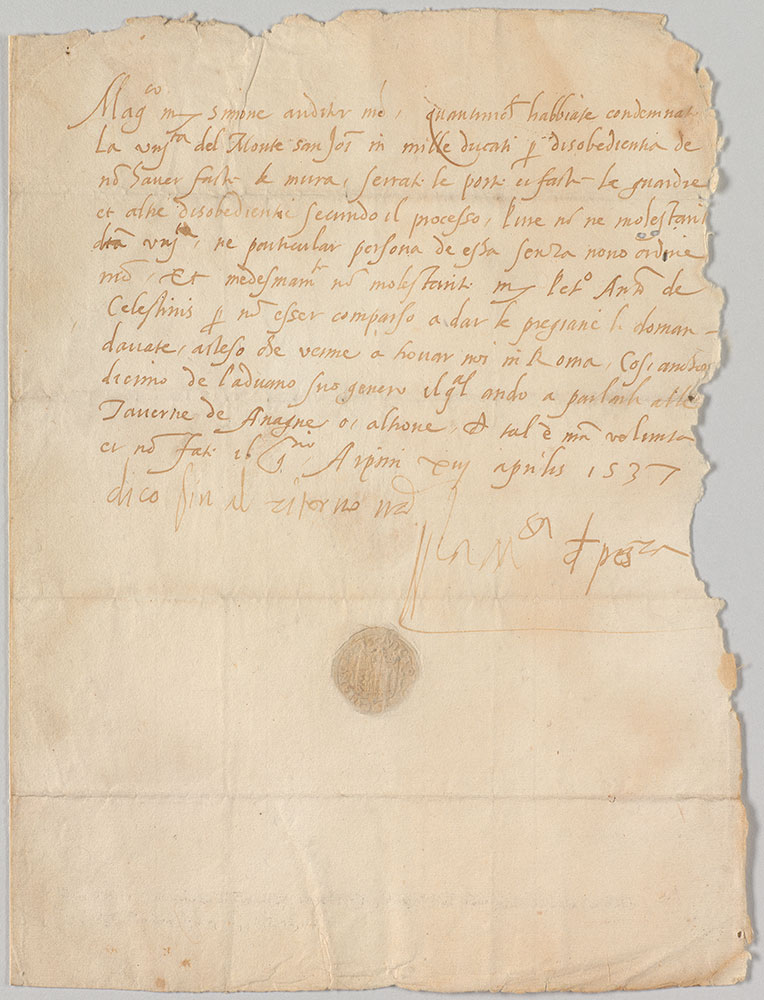 Mag.co m simone auditor nro, quantunq habbiate condemnat
la un.ta del Monte san Joi in mille ducati p disobedientia de
no haver fatt le mura, serrat le port et fatt le guardie
et altre disobedientie secundo il processo, no ne molestarit
dta un.ta, ne particular persona de essa senza novo ordine
nro, Et medesmam.te no molestarit m Ant.o de
Celestinis p no esser comparso a dar le pregiarie li doman-
davate, atteso che venne a trovar noi in Roma, Cosi anchor
dicimo de suo genero il q.al ando a parlarli alle
Taverne de Anagne o, altrove, Et tal è nra volunta
et no fati il Arpini xiij aprilis 1537
dico fin al ritorno nro
M pesra